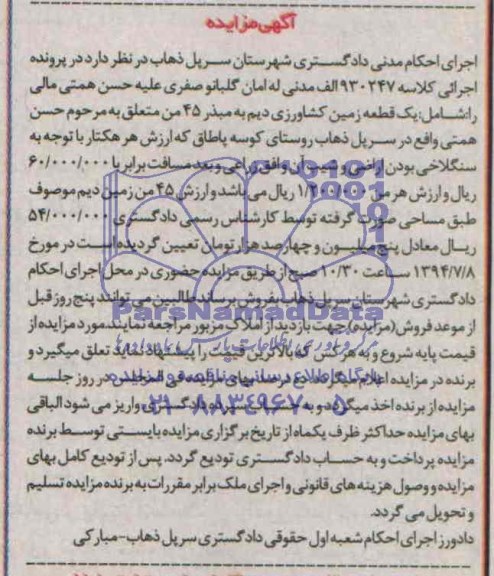 آگهی مزایده
اجرای احکام مدنی دادگستری شهرستان سرپل ذهاب در نظر دارد در پرونده
اجرائی کلاسه ۹۳۰۲۴۷ الف مدنی له امان گلبانو صفری علیه حسن همتی مالی
را شامل: یک قطعه زمین کشاورزی دیم به مبذر ۴۵ من متعلق به مرحوم حسن
همتی واقع در سرپل ذهاب روستای کوسه پاطاق که ارزش هر هکتار با توجه به
سنگلاخی بودن اراضی و شیب آن و افق زراعی و بعد مسافت برابر با ۶۰/۰۰۰/۰۰۰
ریال و ارزش هر من ۱/۲۰۰/۰۰۰ ریال می باشد و ارزش ۴۵ من زمین دیم موصوف
طبق مساحی صورت گرفته توسط کارشناس رسمی دادگستری ۵۴/۰۰۰/۰۰۰
ریال معادل پنج میلیون و چهارصد هزار تومان تعیین گردیده است در مورخ
۱۳۹۴/۷/۸ ساعت ۱۰/۳۰ صبح از طریق مزایده حضوری در محل اجرای احکام
دادگستری شهرستان سرپل ذهاب بفروش برساند طالبین می توانند پنج روز قبل
ParsNamadData
از موعد فروش (مزایده) جهت بازدید از املاک مزبور مراجعه نمایند مورد مزایده از
قیمت پایه شروع و به هر کس که بالاترین قیمت را پیشنهاد نماید تعلق میگیرد و
برنده در مزایده اعلام میگردد ده درصد بهای مزایده فی المجلس در روز جلسه
مزایده از برنده اخذ میگردد و به حساب سپرده دادگستری واریز می شود الباقی
۰۲۱-۸۸۳۴۹۶۷۰-۵
بهای مزایده حداکثر ظرف یکماه از تاریخ برگزاری مزایده بایستی توسط برنده
مزایده پرداخت و به حساب دادگستری تودیع گردد. پس از تودیع کامل بهای
مزایده و وصول هزینه های قانونی و اجرای ملک برابر مقررات به برنده مزایده تسلیم
و تحویل می گردد.
دادورز اجرای احکام شعبه اول حقوقی دادگستری سرپل ذهاب - مبارکی